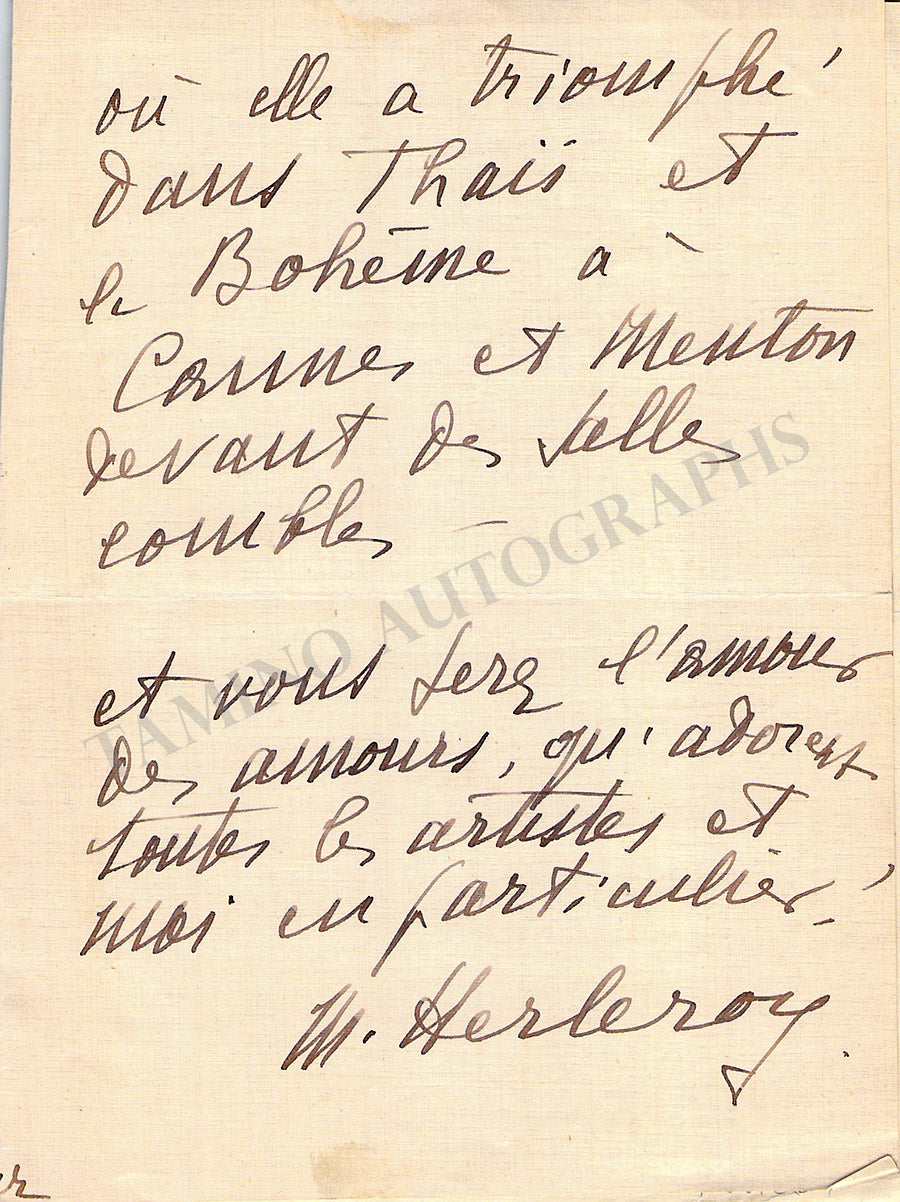 où elle a triomphé
dans Thaïs et
la Bohême à
Cannes et Menton
devant des salles
combles —
et vous serez l'amour
des amours, qu'adorent
toutes les artistes et
moi en particulier!
M. Herleroy
TAMINO AUTOGRAPHS